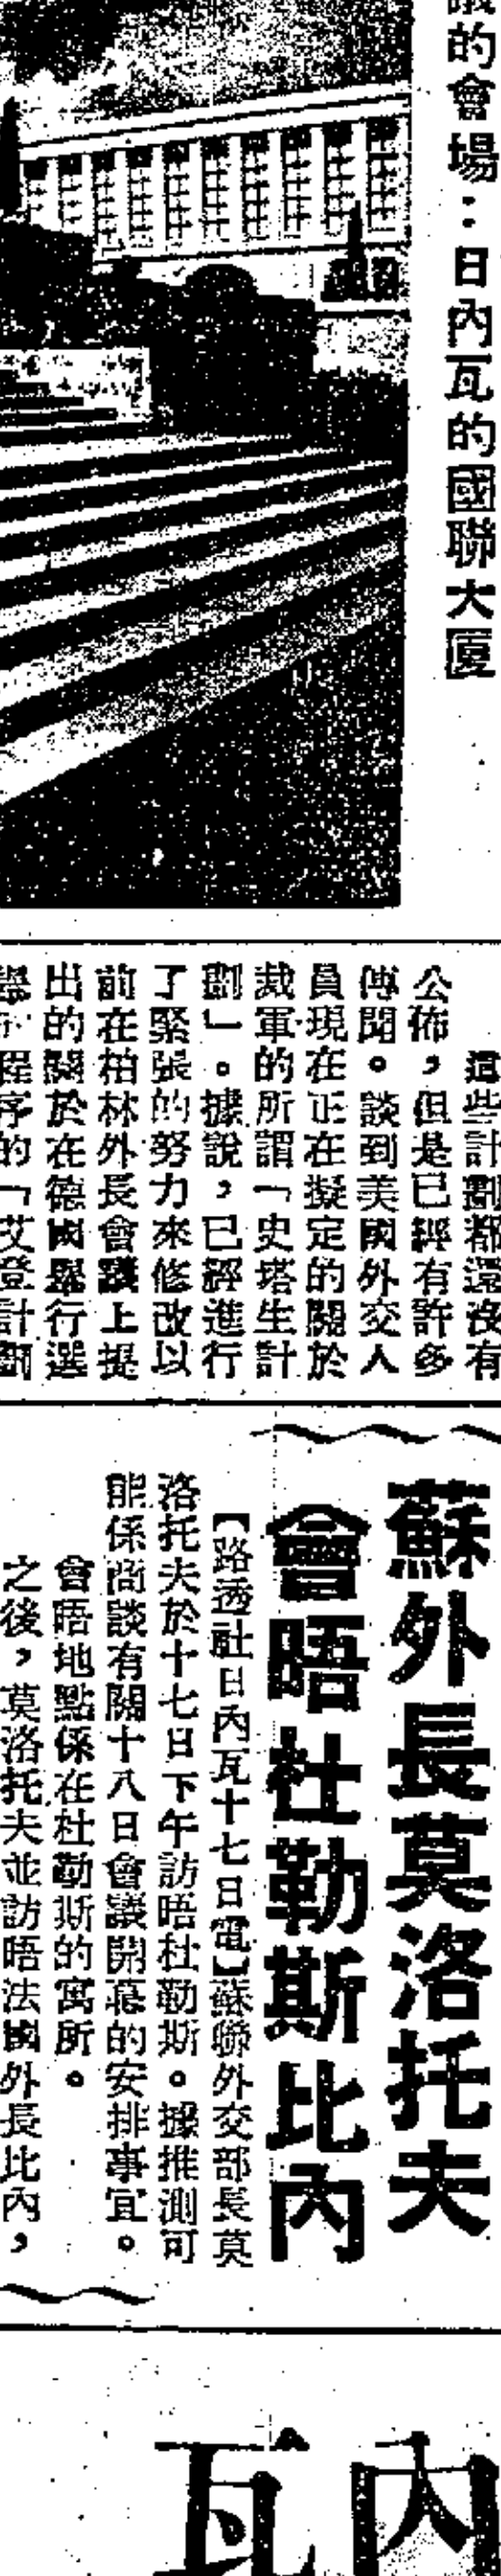 的會場：日內瓦的國聯大厦
這些計劃都還沒有
公佈，但是已經有許多
傳聞。談到美國外交人
員現在正在擬定的關於
裁軍的所謂「史塔生計
劃」。據說，已經進行
了緊張的努力來修改以
前在柏林外長會議上提
出的關於在德國舉行選
程序的「艾登計劃
蘇外長莫洛托夫
會晤杜勒斯比內
【路透社日內瓦十七日電】蘇聯外交部長莫
洛托夫於十七日下午訪晤杜勒斯。據推測可
能係商談有關十八日會議開幕的安排事宜。
會晤地點係在杜勒斯的寓所。
之後，莫洛托夫並訪晤法國外長比內，
內瓦